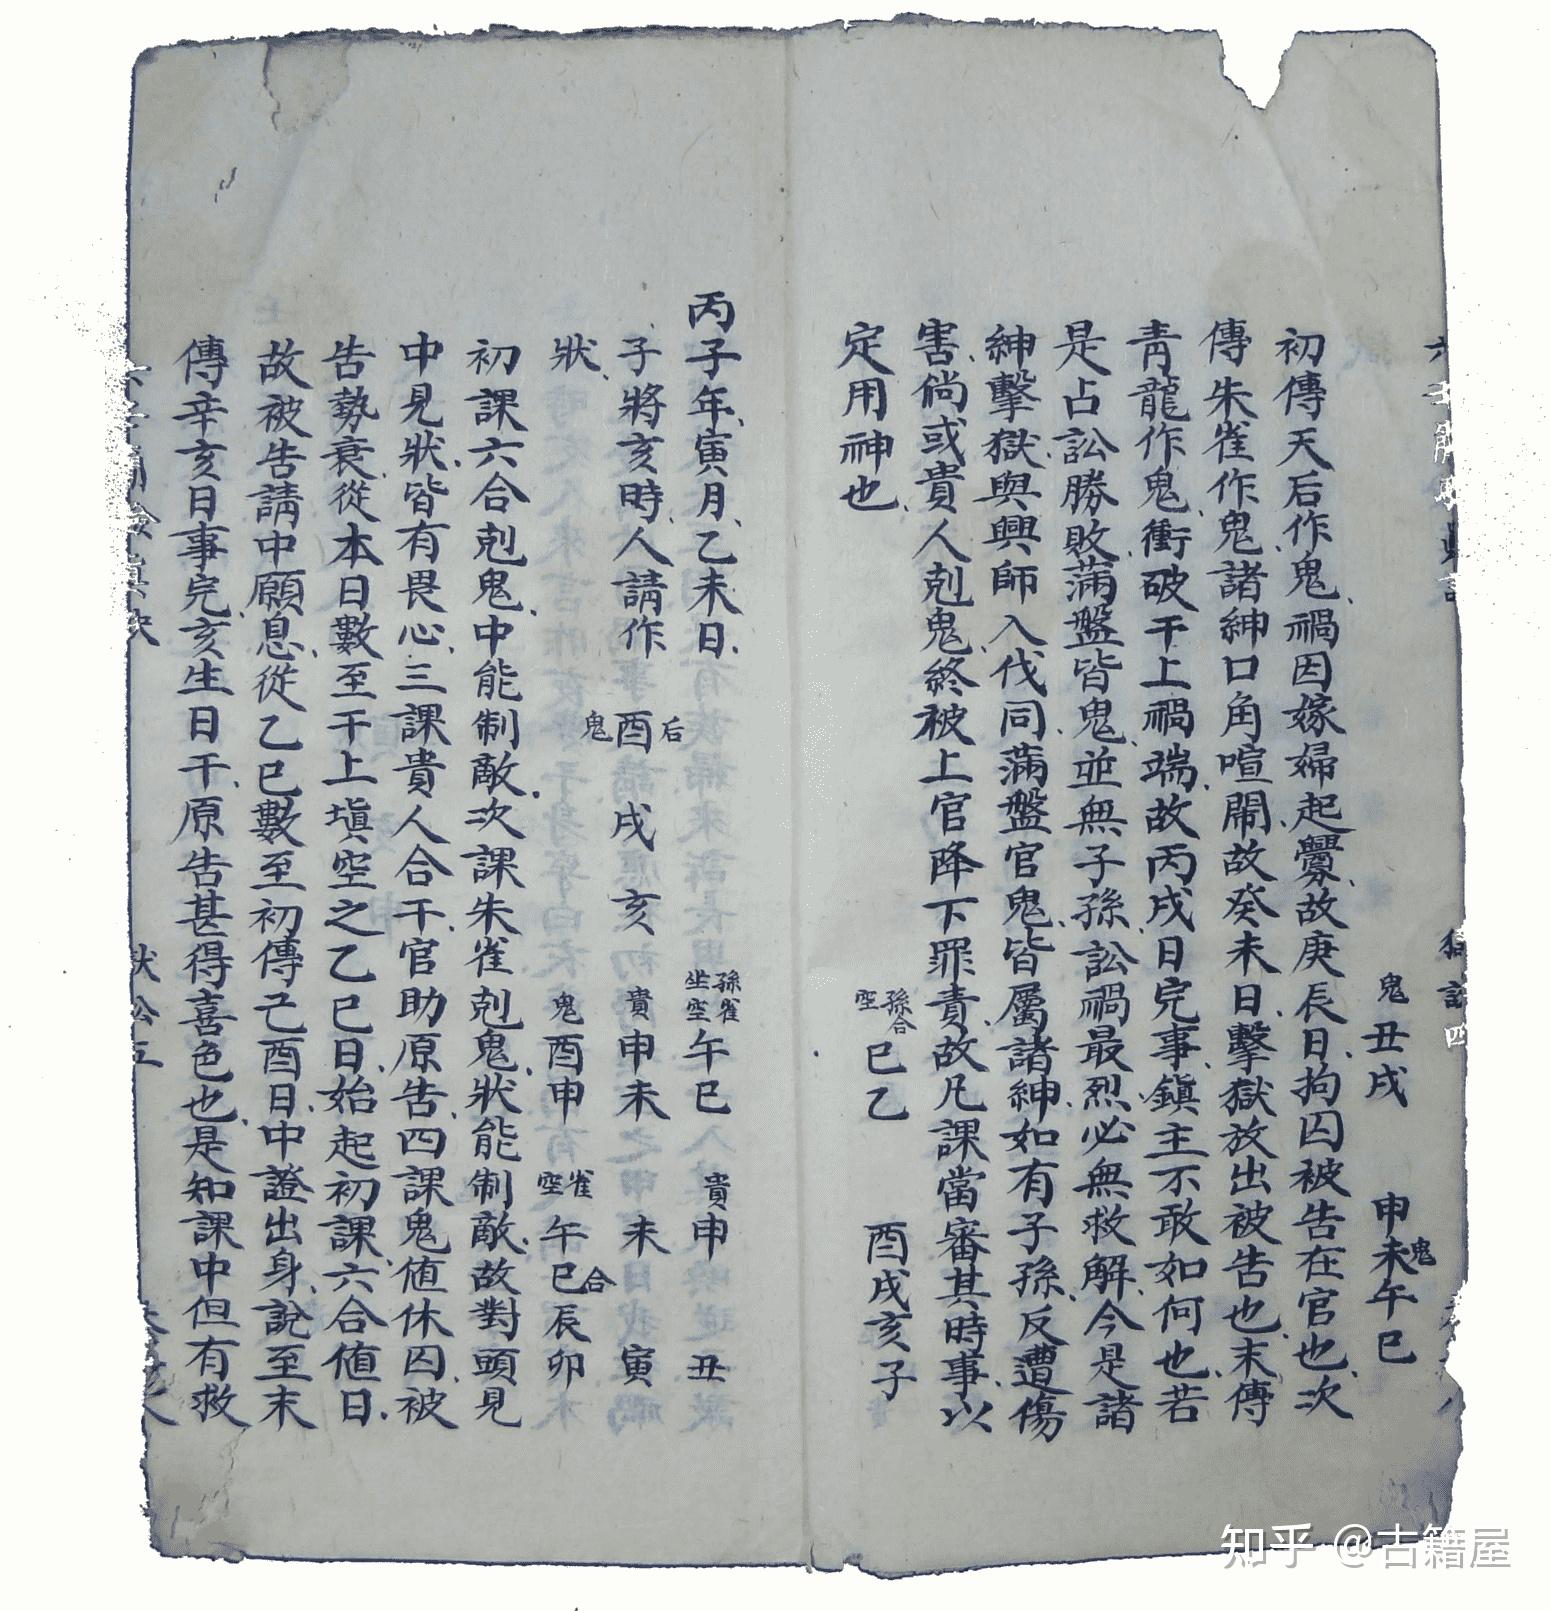 鬼 丑戌 申未午巳 鬼
初傳天后作鬼禍因嫁婦起釁故庚辰日拘囚被告在官也次
傳朱雀作鬼諸紳口角喧鬧故癸未日擊獄放出被告也末傳
青龍作鬼衝破干上禍端故丙戌日完事鎮主不敢如何也若
是占訟勝敗滿盤皆鬼並無子孫訟禍最烈必無救解今是諸
紳擊獄與興師入伐同滿盤官鬼皆屬諸紳如有子孫反遭傷
害倘或貴人剋鬼終被上官降下罪責故凡課當審其時事以
定用神也 孫合空 巳乙 酉戌亥子
丙子年寅月乙未日 孫雀坐空 午巳 貴申 丑
子將亥時人請作 后酉鬼 戌 亥 貴 申未 未 寅
狀 鬼 酉申 雀空 午巳合辰卯
初課六合剋鬼中能制敵次課朱雀剋鬼狀能制敵故對頭見
中見狀皆有畏心三課貴人合干官助原告四課鬼值休囚被
告勢衰從本日數至干上塡空之乙巳日始起初課六合值日
故被告請中願息從乙巳數至初傳己酉日中證出身說至末
傳辛亥日事完亥生日干原告甚得喜色也是知課中但有救
訟五
知乎 @古籍屋